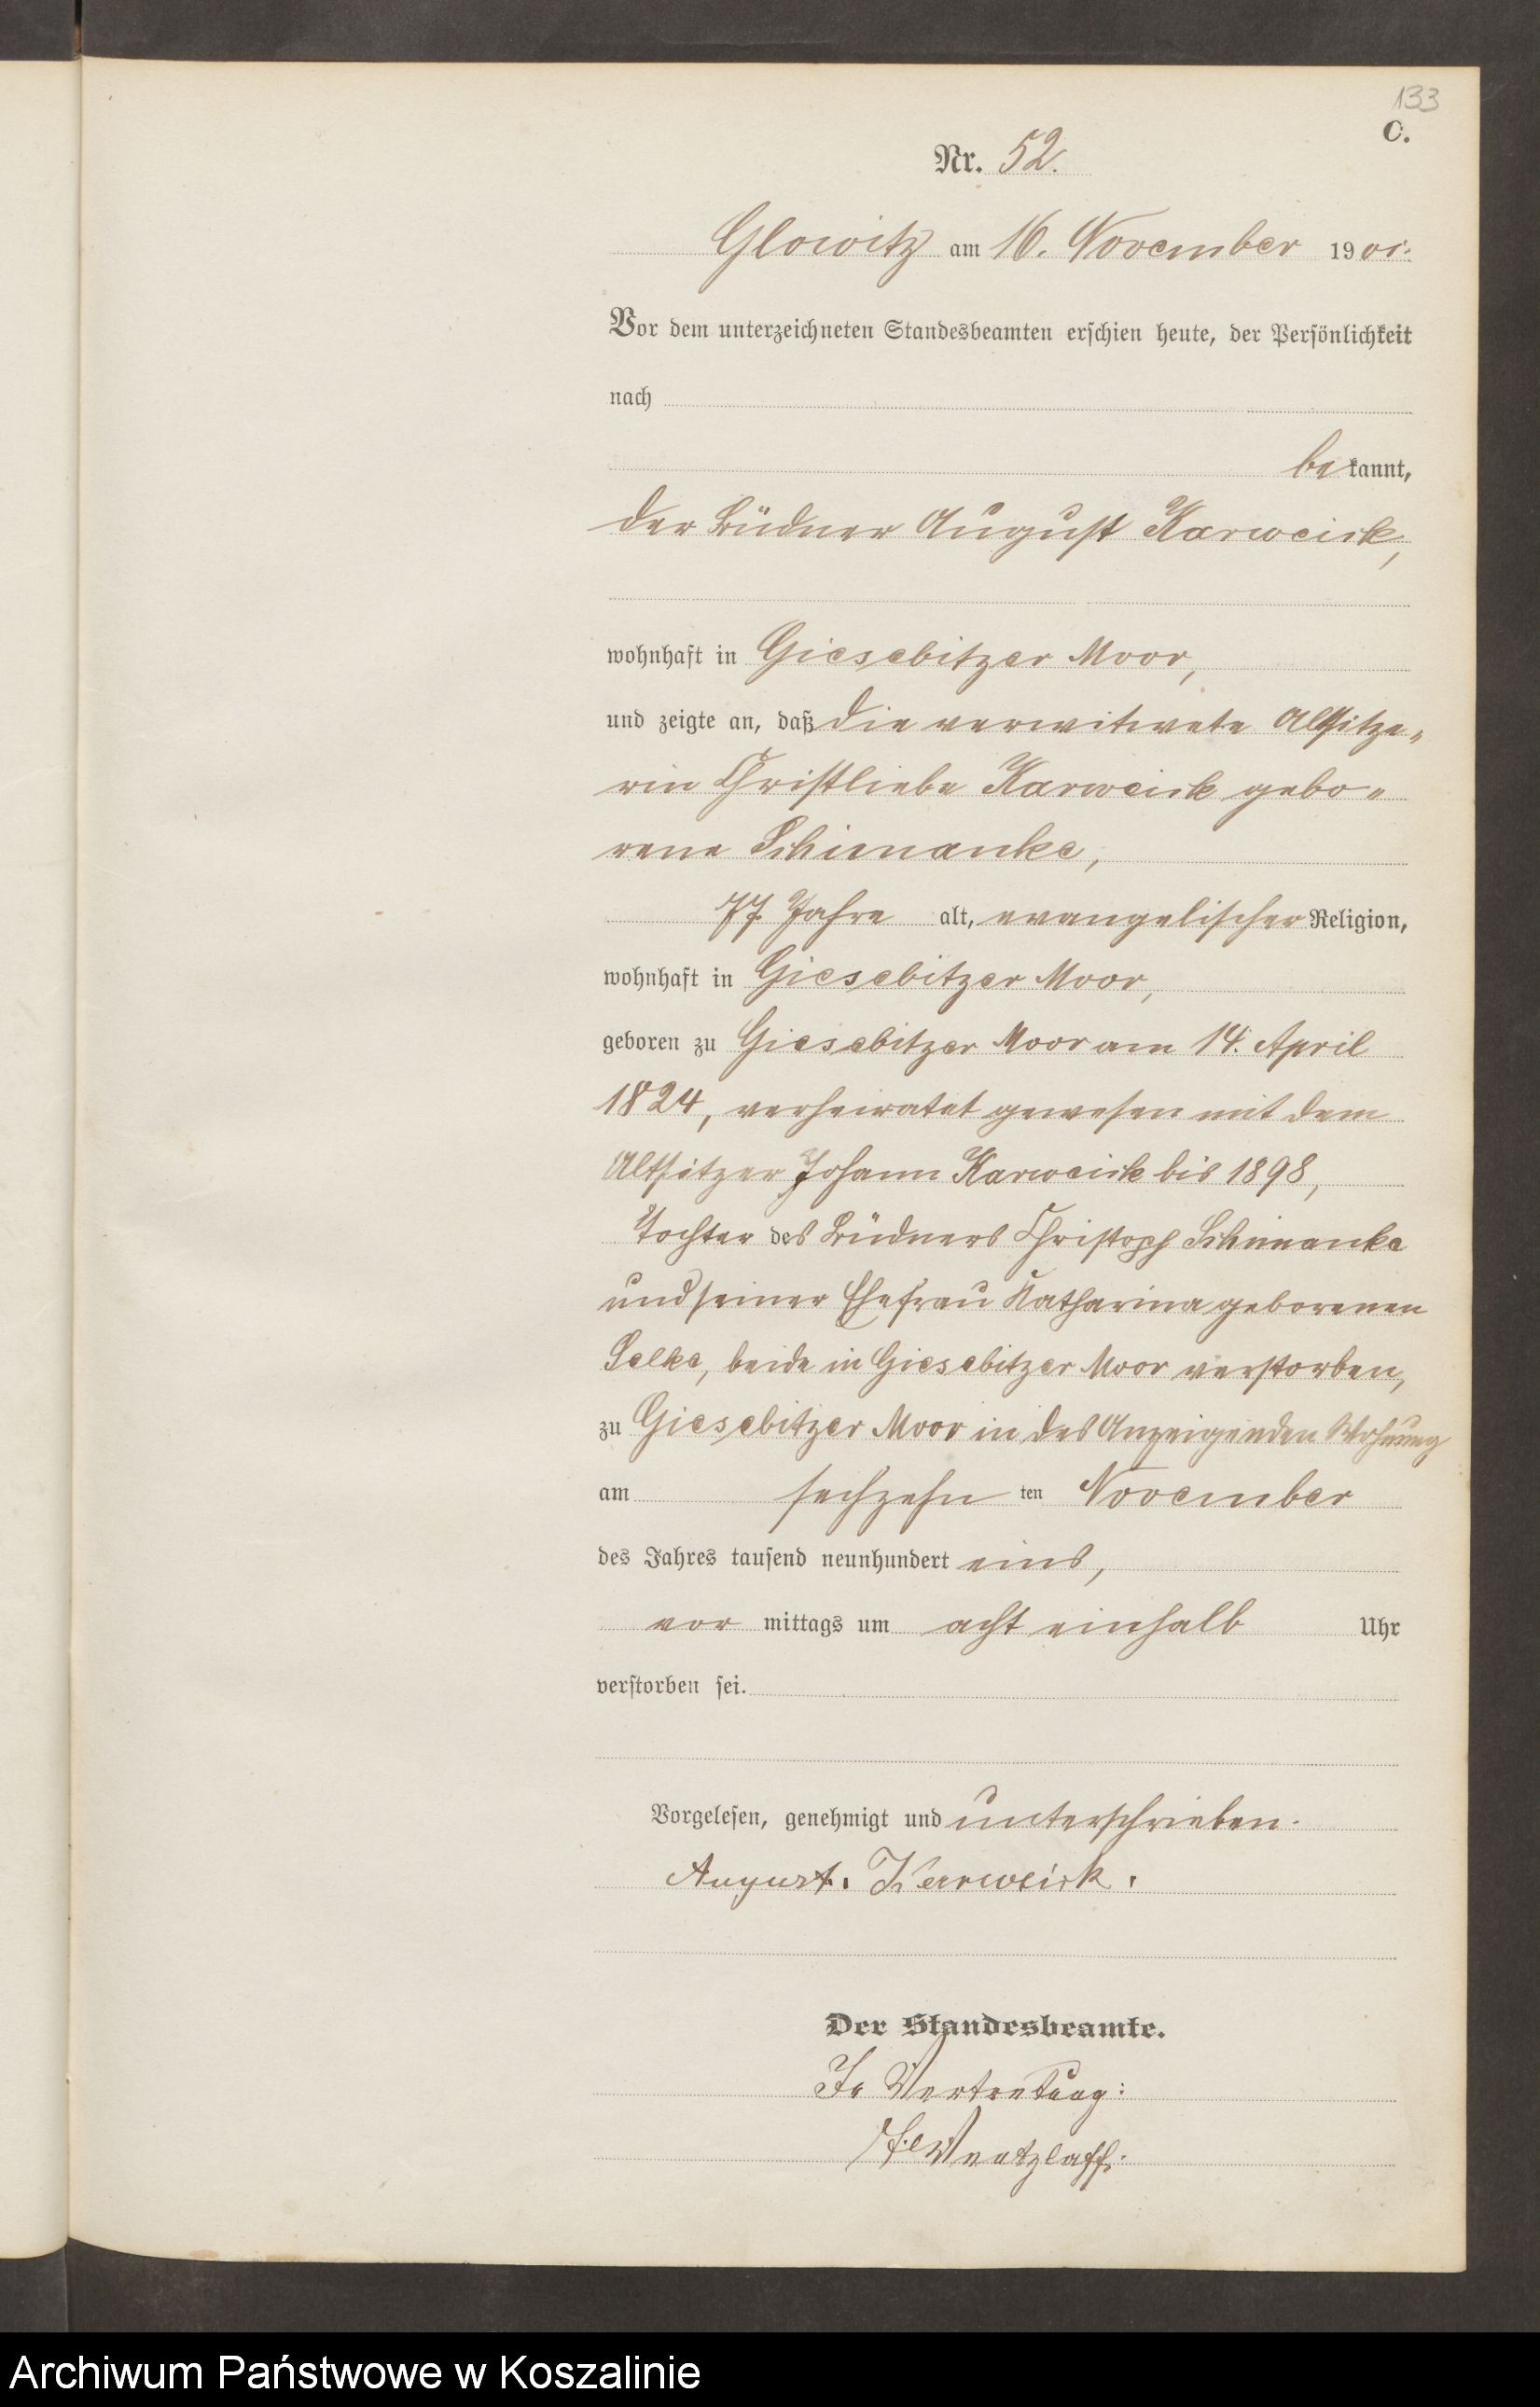 133
C.
Nr. 52.
Glowitz am 16. November 1901.
Vor dem unterzeichneten Standesbeamten erschien heute, der Persönlichkeit
nach
be kannt,
der Büdner August Karweick,
wohnhaft in Giesebitzer Moor,
und zeigte an, daß die verwitwete Altsitze-
rin Christliebe Karweick gebo-
rene Schimanke,
77 Jahre alt, evangelischer Religion,
wohnhaft in Giesebitzer Moor,
geboren zu Giesebitzer Moor am 14. April
1824, verheiratet gewesen mit dem
Altsitzer Johann Karweick bis 1898,
Tochter des Büdners Christoph Schimanke
und seiner Ehefrau Katharina geborenen
Selke, beide in Giesebitzer Moor verstorben,
zu Giesebitzer Moor in des Anzeigenden Wohnung
am sechzehn ten November
des Jahres tausend neunhundert eins,
vor mittags um acht einhalb Uhr
verstorben sei.
Vorgelesen, genehmigt und unterschrieben.
August. Karweick.
Der Standesbeamte.
In Vertretung:
Wentzlaff.
Archiwum Państwowe w Koszalinie